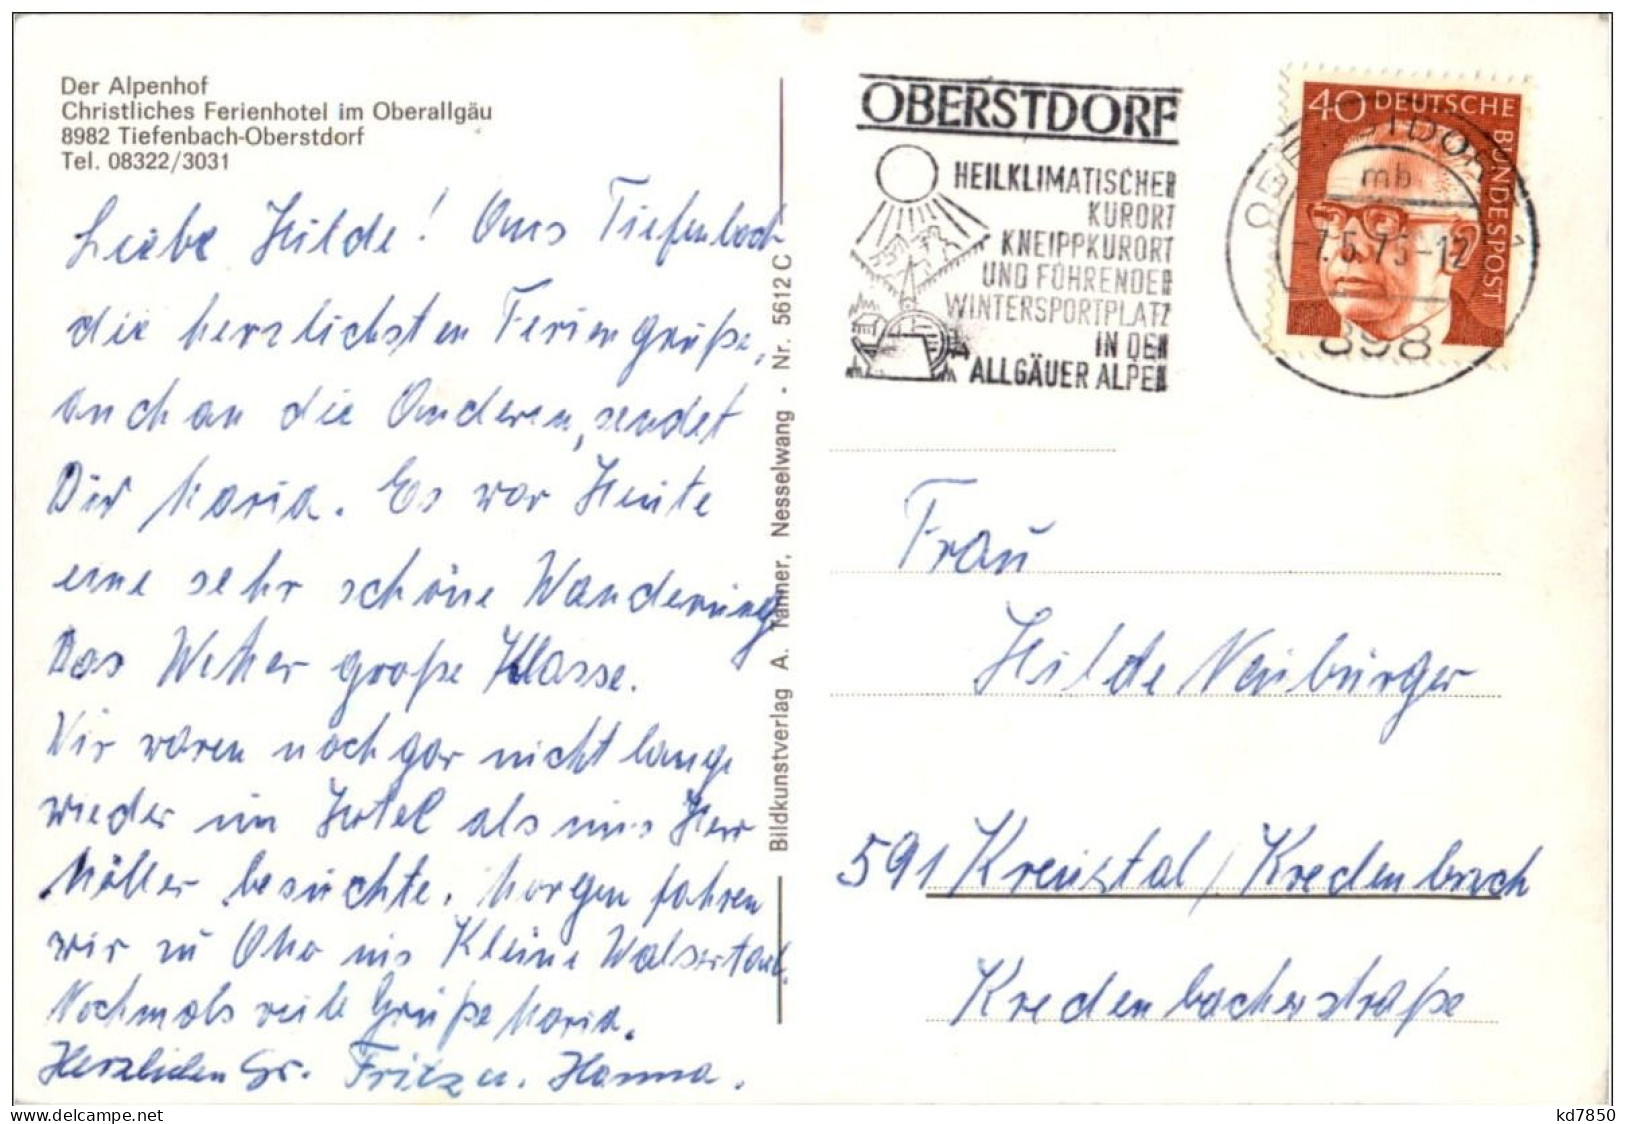 Der Alpenhof
Christliches Ferienhotel im Oberallgäu
8982 Tiefenbach-Oberstdorf
Tel. 08322/3031
Liebe Hilde! Aus Tiefenbach
die herzlichsten Feriengrüße,
auch an die Anderen, sendet
Dir Maria. Es war Heute
eine sehr schöne Wanderung
Das Wetter große Klasse.
Wir waren noch gar nicht lange
wieder im Hotel als uns Herr
Möller besuchte. Morgen fahren
wir zu Otto ins Kleine Walsertal.
Nochmals viele Grüße Maria.
Herzlichen Gr. Fritz u. Hanna.
Bildkunstverlag A. Tanner, Nesselwang · Nr. 5612 C
OBERSTDORF
HEILKLIMATISCHER
KURORT
KNEIPPKURORT
UND FÜHRENDER
WINTERSPORTPLATZ
IN DEN
ALLGÄUER ALPEN
40 DEUTSCHE BUNDESPOST
OBERSTDORF 1
mb
-7.5.75-12
898
Frau
Hilde Neubürger
591 Kreuztal / Kredenbach
Kredenbacherstraße
kd7850